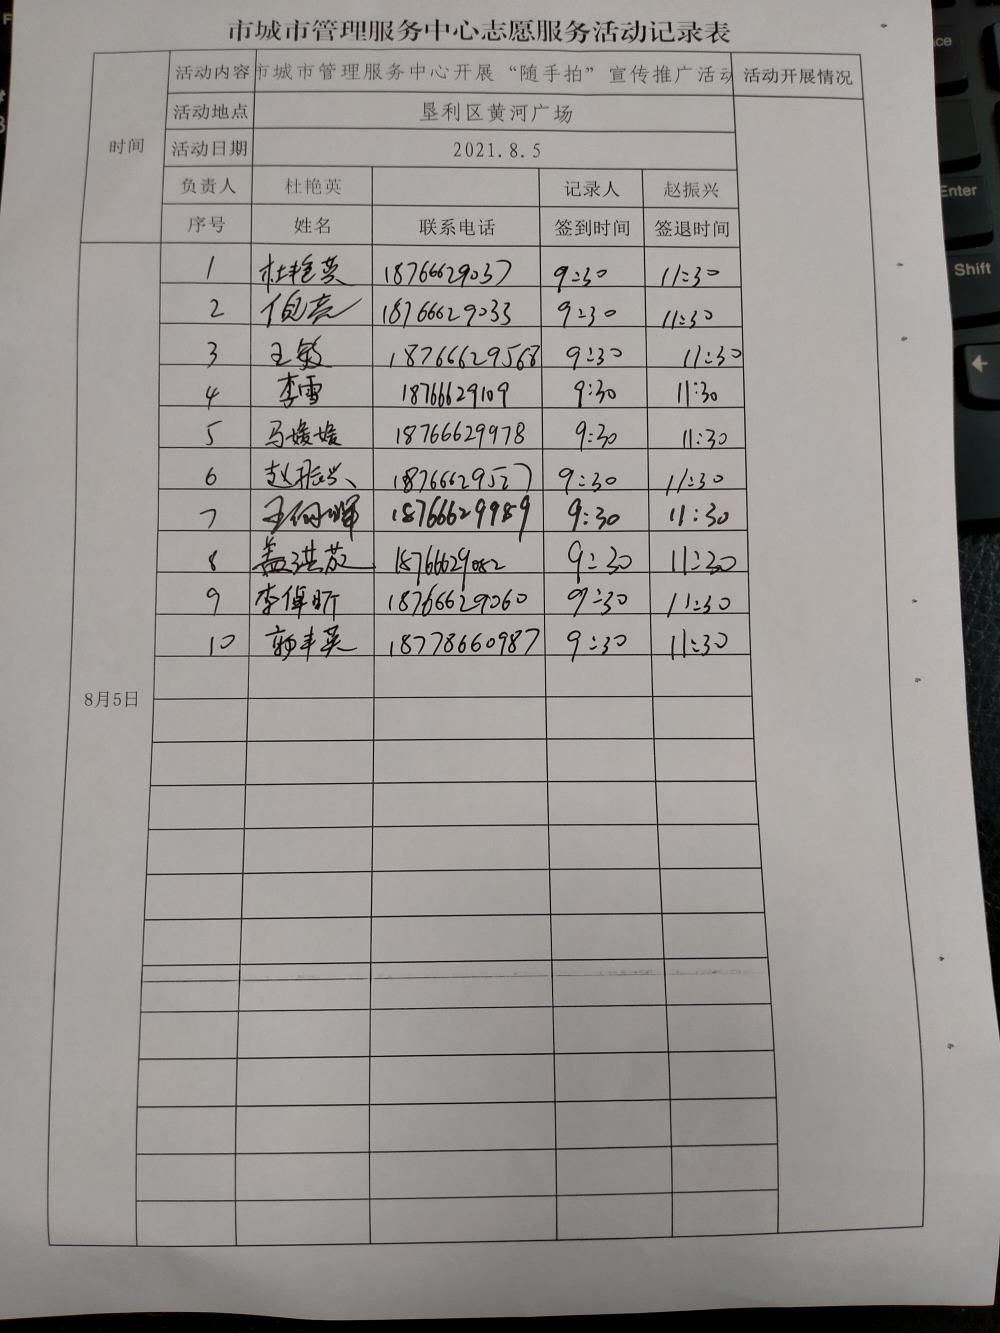 市城市管理服务中心志愿服务活动记录表
时间 活动内容 市城市管理服务中心开展“随手拍”宣传推广活动 活动开展情况
活动地点 垦利区黄河广场
活动日期 2021.8.5
负责人 杜艳英 记录人 赵振兴
序号 姓名 联系电话 签到时间 签退时间
8月5日
1 杜艳英 18766629037 9:30 11:30
2 18766629033 9:30 11:30
3 王敏 18766629568 9:30 11:30
4 李雪 18766629109 9:30 11:30
5 马媛媛 18766629978 9:30 11:30
6 赵振兴 18766629527 9:30 11:30
7 18766629989 9:30 11:30
8 18766629082 9:30 11:30
9 18766629060 9:30 11:30
10 18778660987 9:30 11:30
ce
Enter
Shift